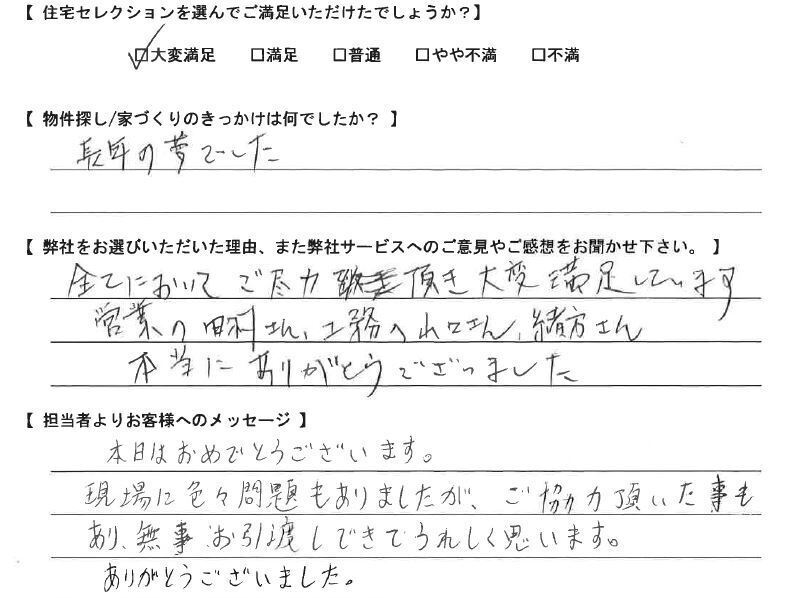 【 住宅セレクションを選んでご満足いただけたでしょうか？】
☑大変満足 □満足 □普通 □やや不満 □不満
【 物件探し/家づくりのきっかけは何でしたか？ 】
長年の夢でした
【 弊社をお選びいただいた理由、また弊社サービスへのご意見やご感想をお聞かせ下さい。 】
全てにおいてご尽力頂き大変満足しています
営業の田科さん、工務の山口さん、緒方さん
本当にありがとうございました
【 担当者よりお客様へのメッセージ 】
本日はおめでとうございます。
現場に色々問題もありましたが、ご協力頂いた事も
あり、無事お引渡しできてうれしく思います。
ありがとうございました。